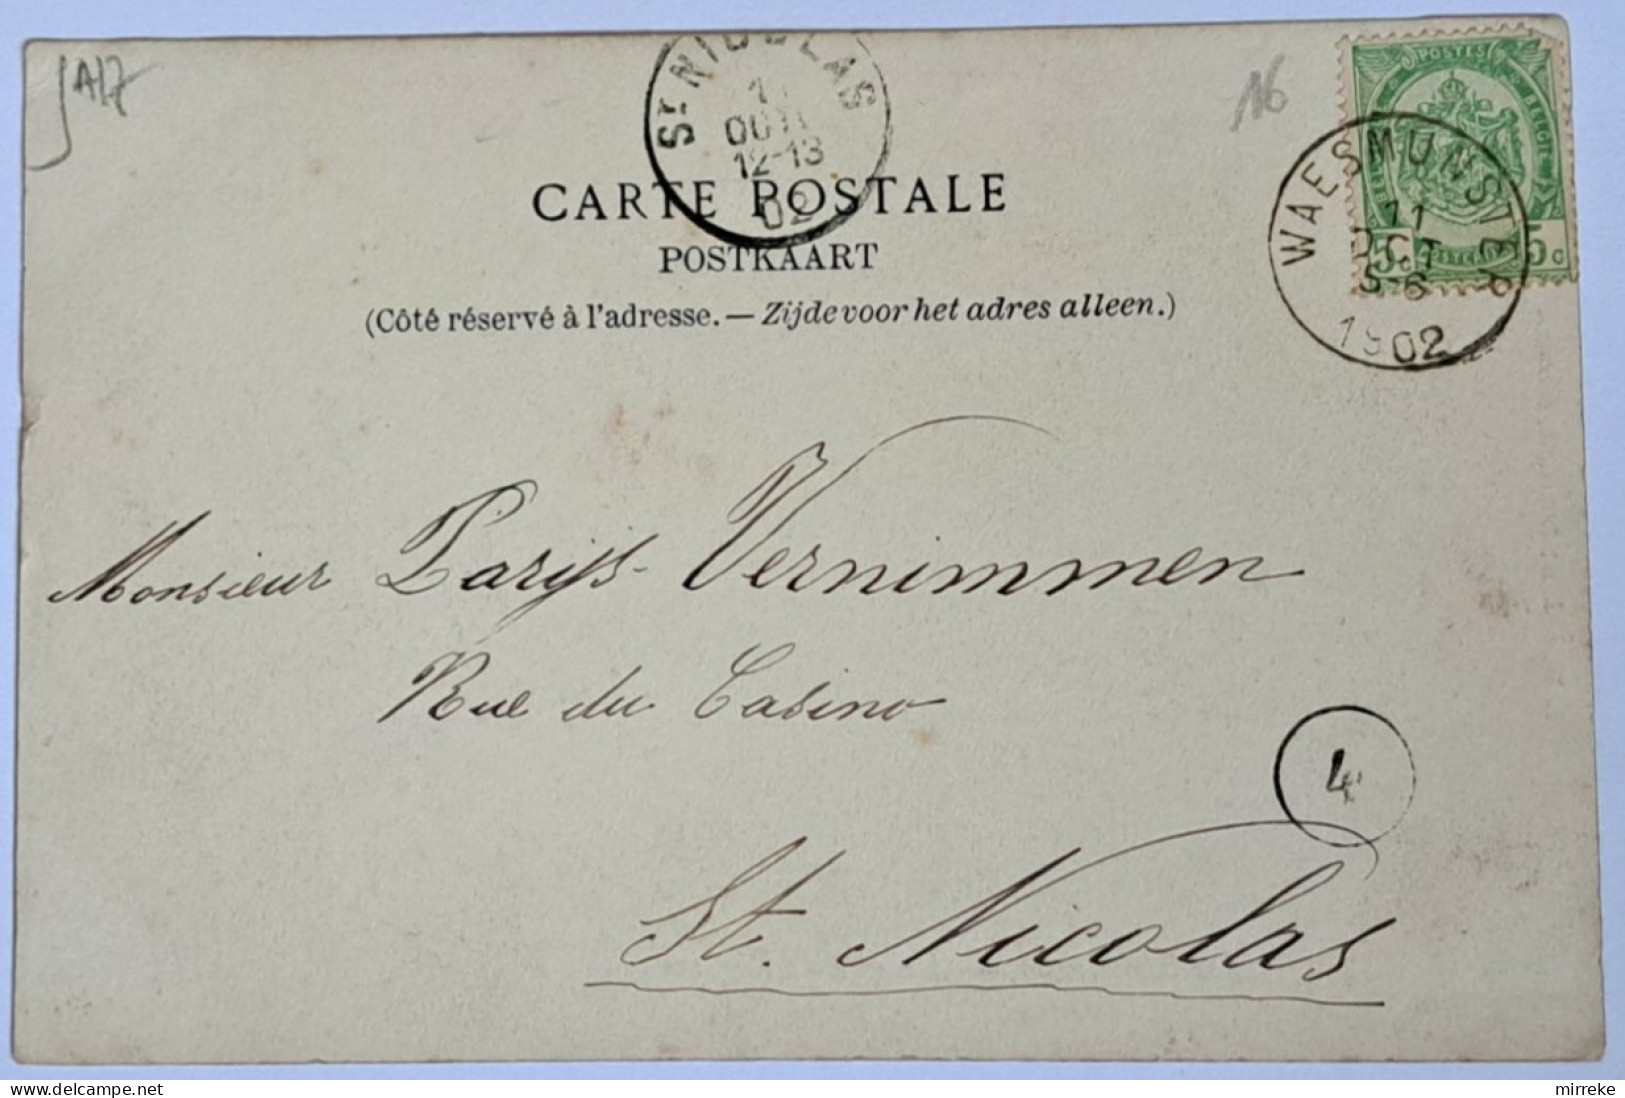 A17
16
St NICOLAS
12-13
02
POSTES
BELGIË
5c
5c
WAESMUNSTER
11
OCT
5-6
1902
CARTE POSTALE
POSTKAART
(Côté réservé à l'adresse. — Zijde voor het adres alleen.)
Monsieur Parijs-Vernimmen
Rue du Casino
4
St. Nicolas
delcampe.net
mirreke